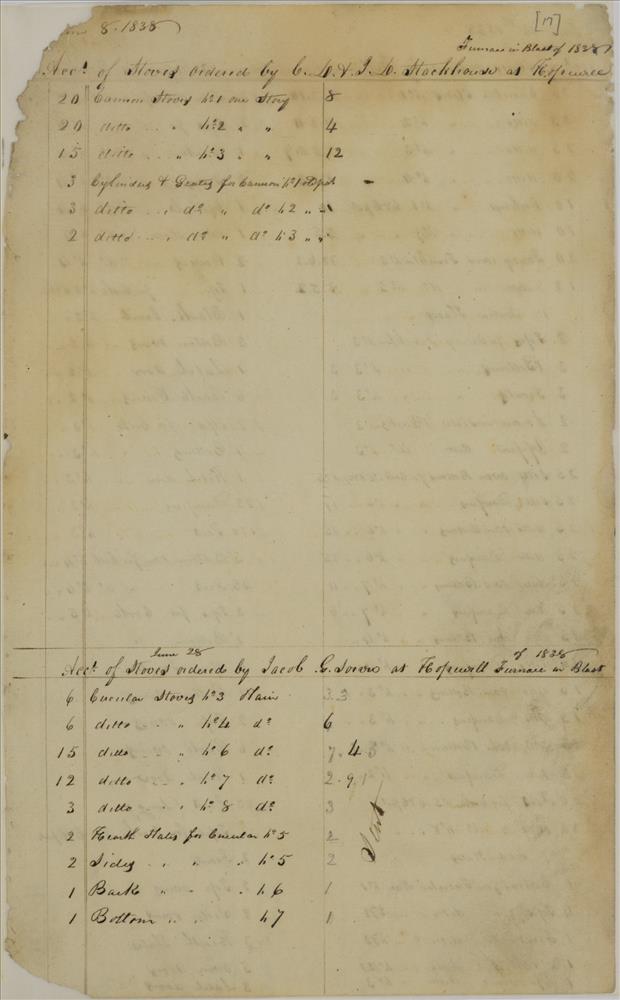 8. 1838
[17]
Furnace in Blast of 1838
Acct of Stoves ordered by C. D. & J. D. Stackhouse at Hopewell
20 Cannon Stoves No 1 one Story 8
20 ditto " No 2 " " 4
15 ditto " No 3 " " 12
3 Cylinders & Grates for Cannon No 1
3 ditto " do " do No 2 " "
2 ditto " do " do No 3 " "
June 28 of 1838
Acct of Stoves ordered by Jacob G. at Hopewell Furnace in Blast
6 Circular Stoves No 3 Plain 3.3
6 ditto " No 4 do 6
15 ditto " No 6 do 7.4
12 ditto " No 7 do 2.9.1
3 ditto " No 8 do 3
2 Hearth Plates for Circular No 5 2
2 Sides " " " No 5 2
1 Back " " No 6 1
1 Bottom " " No 7 1
Sent